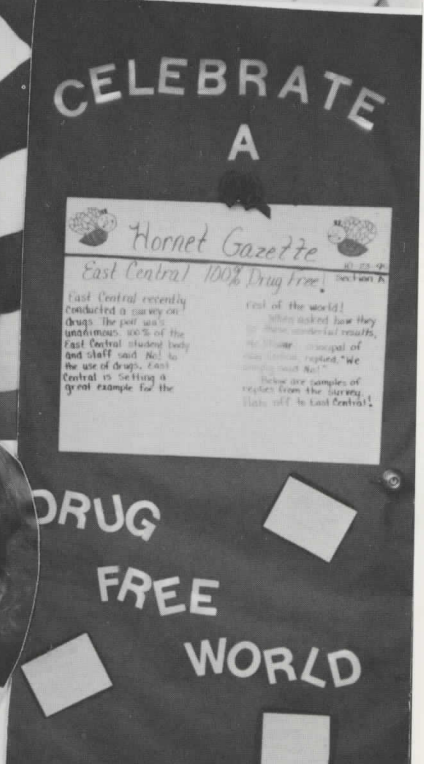 CELEBRATE
A
Hornet Gazette
Section A
East Central 100% Drug Free!
East Central recently
conducted a survey on
drugs. The poll was
unanimous. 100% of the
East Central student body
and staff said No! to
the use of drugs. East
Central is setting a
great example for the
rest of the world!
When asked how they
these wonderful results,
principal of
replied, "We
said No!"
Below are samples of
replies from the survey.
Hats off to East Central!
DRUG
FREE
WORLD